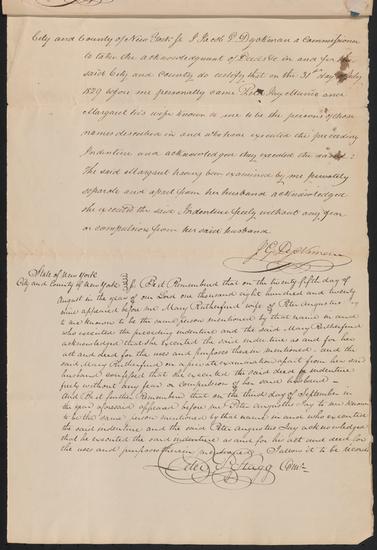 City and County of New York ss I Jacob G Dyckman a Commissioner
to take the acknowledgment of Deeds &c in and for the
said City and County do certify that on the 31st day of July
1829 before me personally came Peter Jay Munro and
Margaret his wife known to me to be the persons whose
names described in and who have executed the preceeding
Indenture and acknowledged they executed the same
The said Margaret having been examined by me privately
separate and apart from her husband acknowledged
she executed the said Indenture freely without any fear
or compulsion from her said husband
J. G. Dyckman
State of New York
City and County of New York ss Be it Remembered that on the twenty fifth day of
August in the year of our Lord one thousand eight hundred and twenty
nine appeared before me Mary Rutherfurd wife of Peter Augustus Jay
to me known to be the same person mentioned by that name in and
who executed the preceding indenture and the said Mary Rutherfurd
acknowledged that she executed the said indenture as and for her
act and deed for the uses and purposes therein mentioned and the
said Mary Rutherfurd on a private examination apart from her said
husband confessed that she executed the said deed or indenture
freely without any fear or compulsion of her said husband –
And Be it further Remembered that on the third day of September in
the year aforesaid appeared before me Peter Augustus Jay to me known
to be the same person mentioned by that name in and who executed
the said indenture and the said Peter Augustus Jay acknowledged
that he executed the said indenture as and for his act and deed for
the uses and purposes therein mentioned I allow it to be recorded
Peter Stagg Comr.